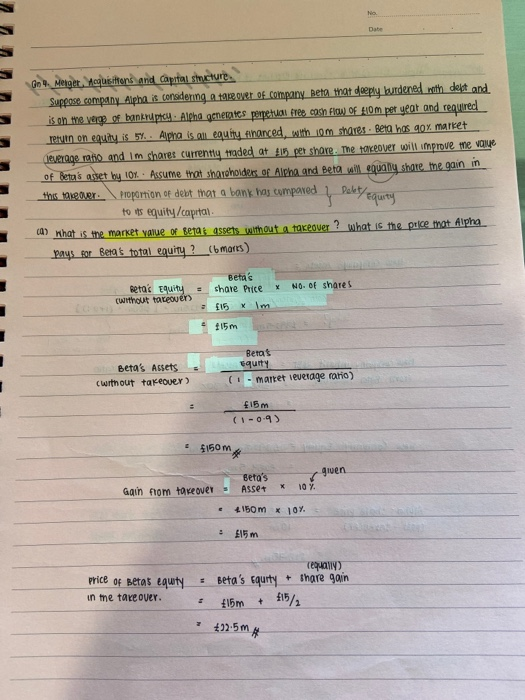 No.
Date
Qn 4. Merger, Acquisitions and Capital structure.
Suppose company Alpha is considering a takeover of company Beta that deeply burdened with debt and
is on the verge of bankruptcy. Alpha generates perpetual free cash flow of £10m per year and required
return on equity is 5%. Alpha is all equity financed, with 10m shares. Beta has 90% market
leverage ratio and 1m shares currently traded at £15 per share. The takeover will improve the value
of Beta's asset by 10%. Assume that shareholders of Alpha and Beta will equally share the gain in
this takeover. Proportion of debt that a bank has compared } Debt/Equity
to its equity/capital.
(a) What is the market value of Beta's assets without a takeover? What is the price that Alpha
pays for Beta's total equity? (6 marks)
Beta's Equity = Beta's share Price x No. of shares
(without takeover)
= £15 x 1m
= £15m
Beta's Assets = Beta's Equity
(without takeover) (1 - market leverage ratio)
= £15m
(1-0.9)
= £150m
given
Gain from takeover = Beta's Asset x 10%
= £150m x 10%
= £15m
(equally)
Price of Beta's equity = Beta's Equity + share gain
in the takeover. = £15m + £15/2
= £22.5m